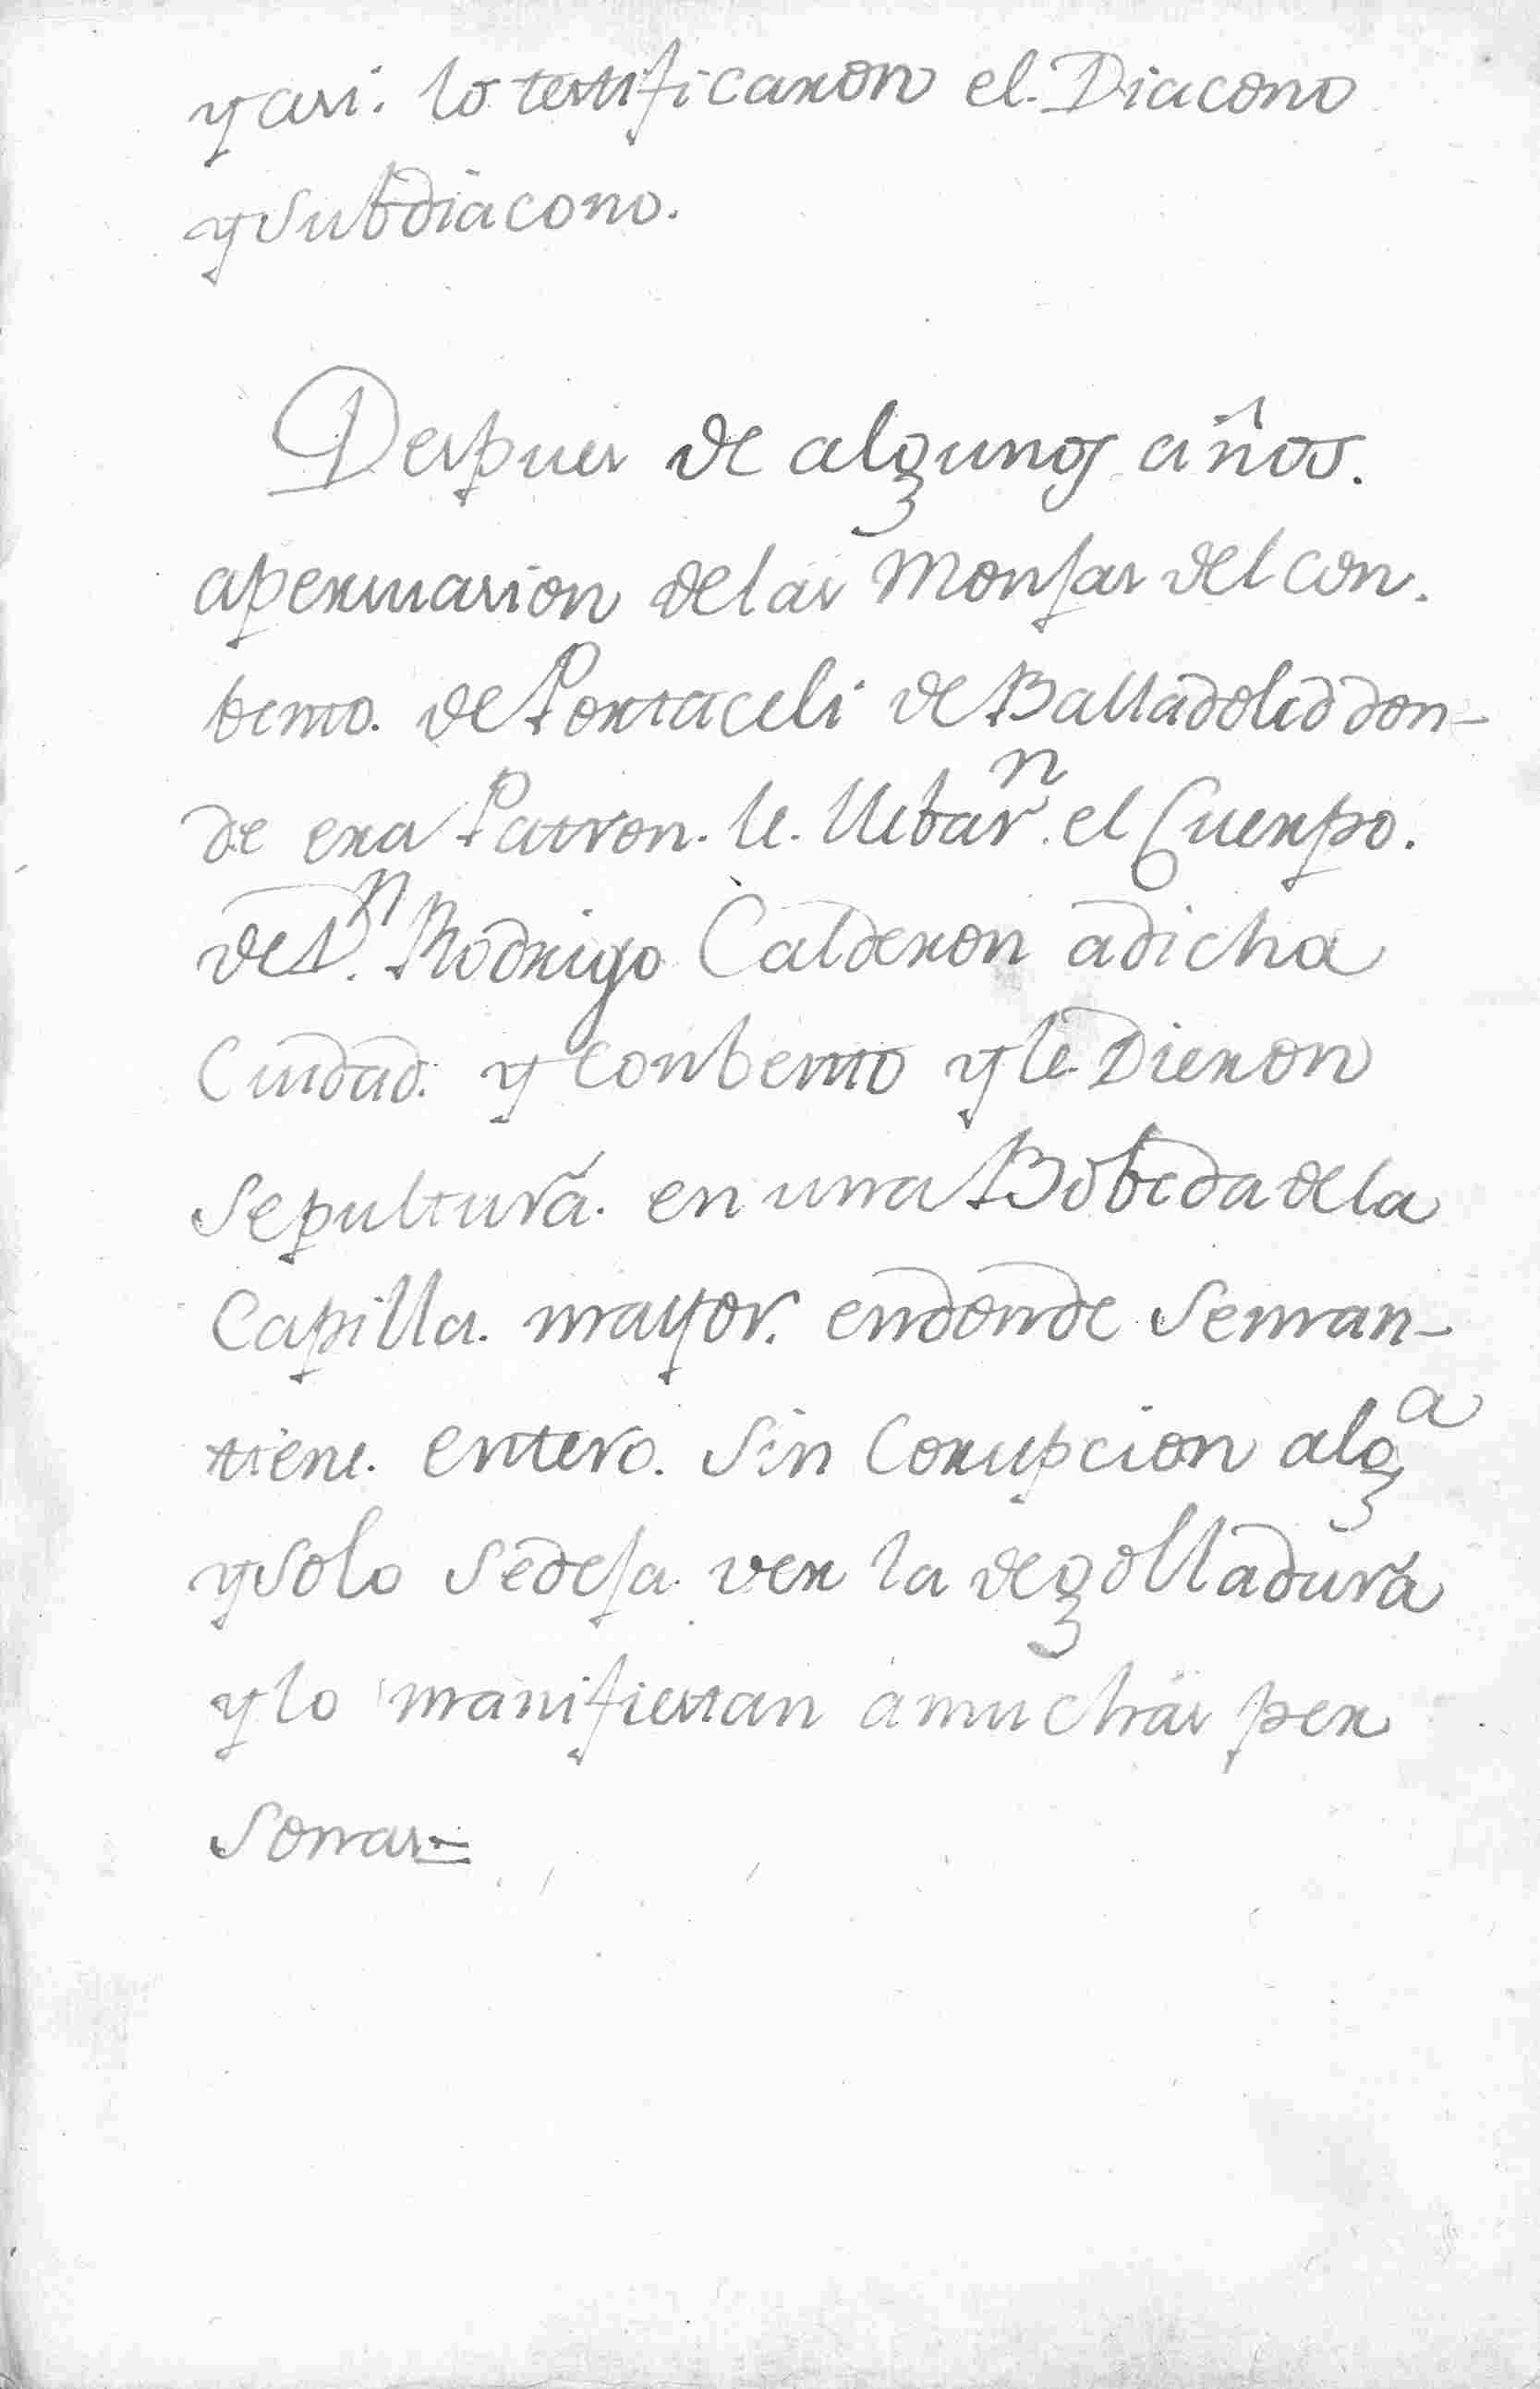 y asi. lo testificaron el. Diacono
y Subdiacono.
Despues de algunos años.
a persuasion de las Monjas del con.
bento. de Portaceli de Balladolid don-
de era Patron. le. llebarⁿ. el Cuerpo.
de Dⁿ. Rodrigo Calderon a dicha
Ciudad. y Conbento y le Dieron
Sepultura. en una Bobeda de la
Capilla. mayor. en donde Se man-
tiene. entero. Sin Corrupcion algª
y Solo Se deja ver la degolladura
y lo manifiestan a muchas per
Sonas=